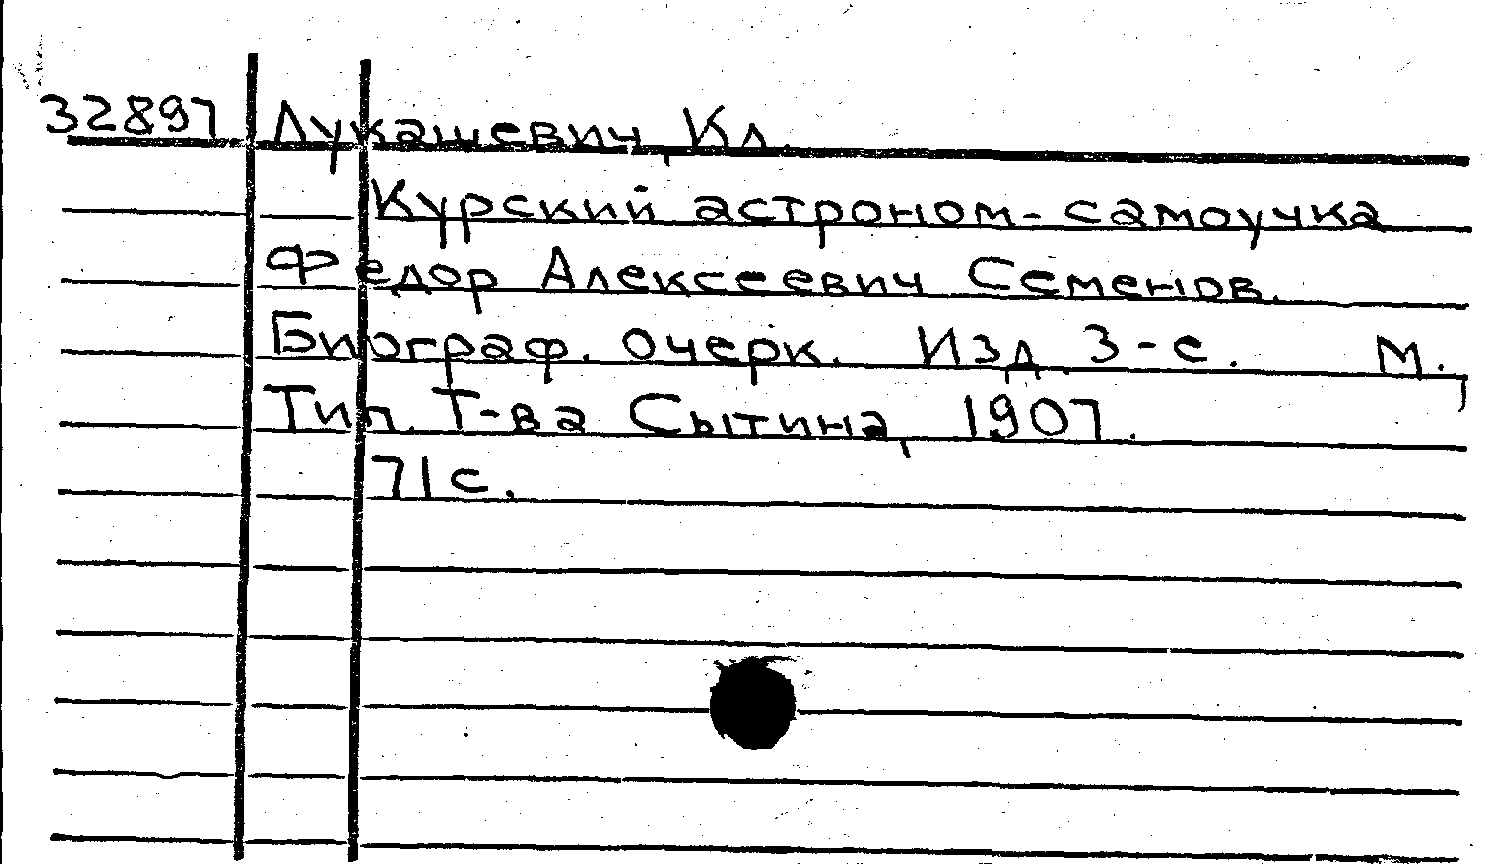 32897 Лукашевич, Кл.
Курский астроном-самоучка
Федор Алексеевич Семенов.
Биограф. очерк. Изд. 3-е. М.,
Тип. Т-ва Сытина, 1907.
71с.